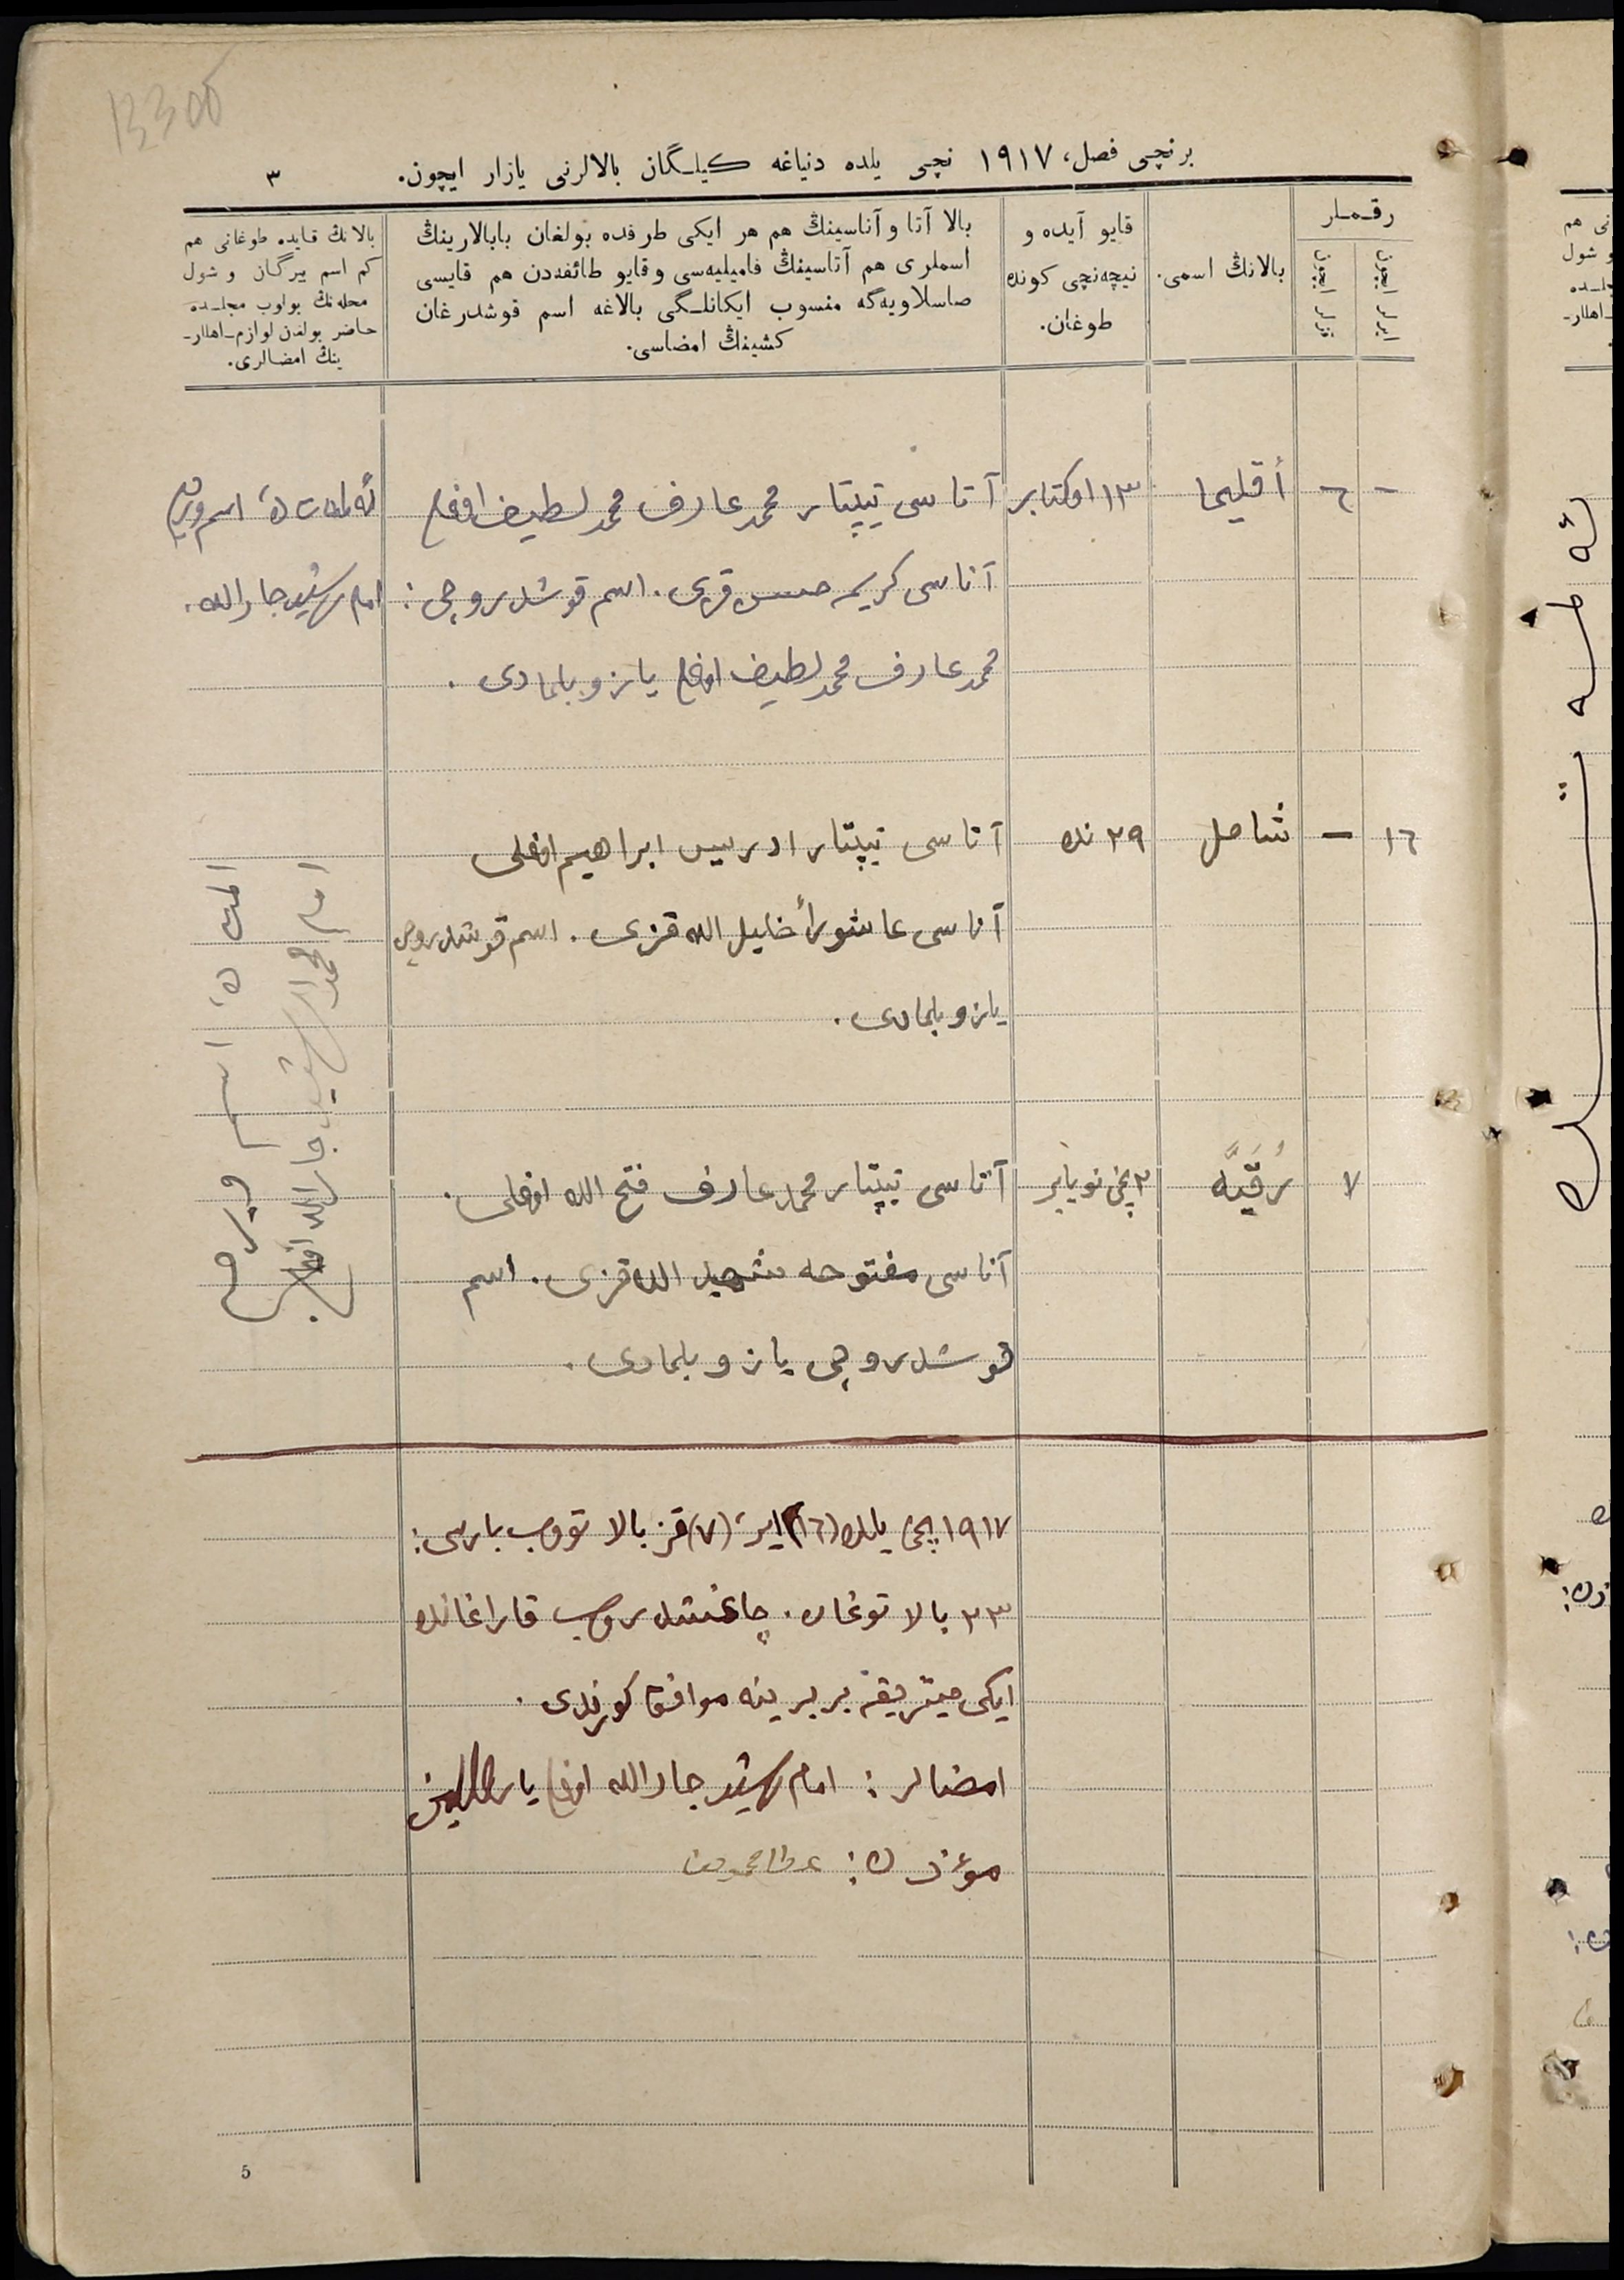 برنچی فصل، ١٩١٧ نچی یلده دنیاغه كیلـگان بالالرنی یازار ایچون.
٣
رقـمـلر
ایرلر ایچون
قزلر ایچون
بالانڭ اسمی.
قایو آیده و
نیچه‌نچی كونده
طوغان.
بالا آتا و آناسینڭ هم هر ایكی طرفده بولغان بابالارینڭ
اسملری هم آتاسینڭ فامیلیه‌سی و قایو طائفه‌دن هم قایسی
صاسلاویه‌گه منسوب ایكانلـگی بالاغه اسم قوشدرغان
كشینڭ امضاسی.
بالانڭ قایده طوغانی هم
كم اسم بیرگان و شول
محله‌نڭ بولوب مجلـده
حاضر بولغان لوازم‌ـاهلار‌ـ
ینڭ امضالری.
–
٦
أقلیما
١٣ اوكتابر
آتاسی تیپتار محمدعارف محمدلطیف اوغلی
آناسی كریمه حسن قزی. اسم قوشدروچی:
محمدعارف محمدلطیف اوغلی یازو بلمادی.
اسم ویرچی
امام رشید جارالله.
١٦
–
شامل
٢٩ نده
آتاسی تیپتار ادریس ابراهیم اوغلی
آناسی عاشورأ خلیل الله قزی. اسم قوشدروچی
یازو بلمادی.
٧
رُقَیَّه
٢ نچی نویابر
آتاسی تیپتار محمدعارف فتح الله اوغلی.
آناسی مفتوحه الله قزی. اسم
قوشدروچی یازو بلمادی.
اسم ویرچی
امام محمدالرشید جارالله اوغلی
١٩١٧ نچی یلده (١٦) ایر، (٧) قز بالا تووب بارسی:
٢٣ بالا توغان. چاغشدروب قاراغانده
ایكی میتریقه بر برینه موافق كورندی.
امضالر: امام رشید جارالله اوغلی
مؤذن:
5